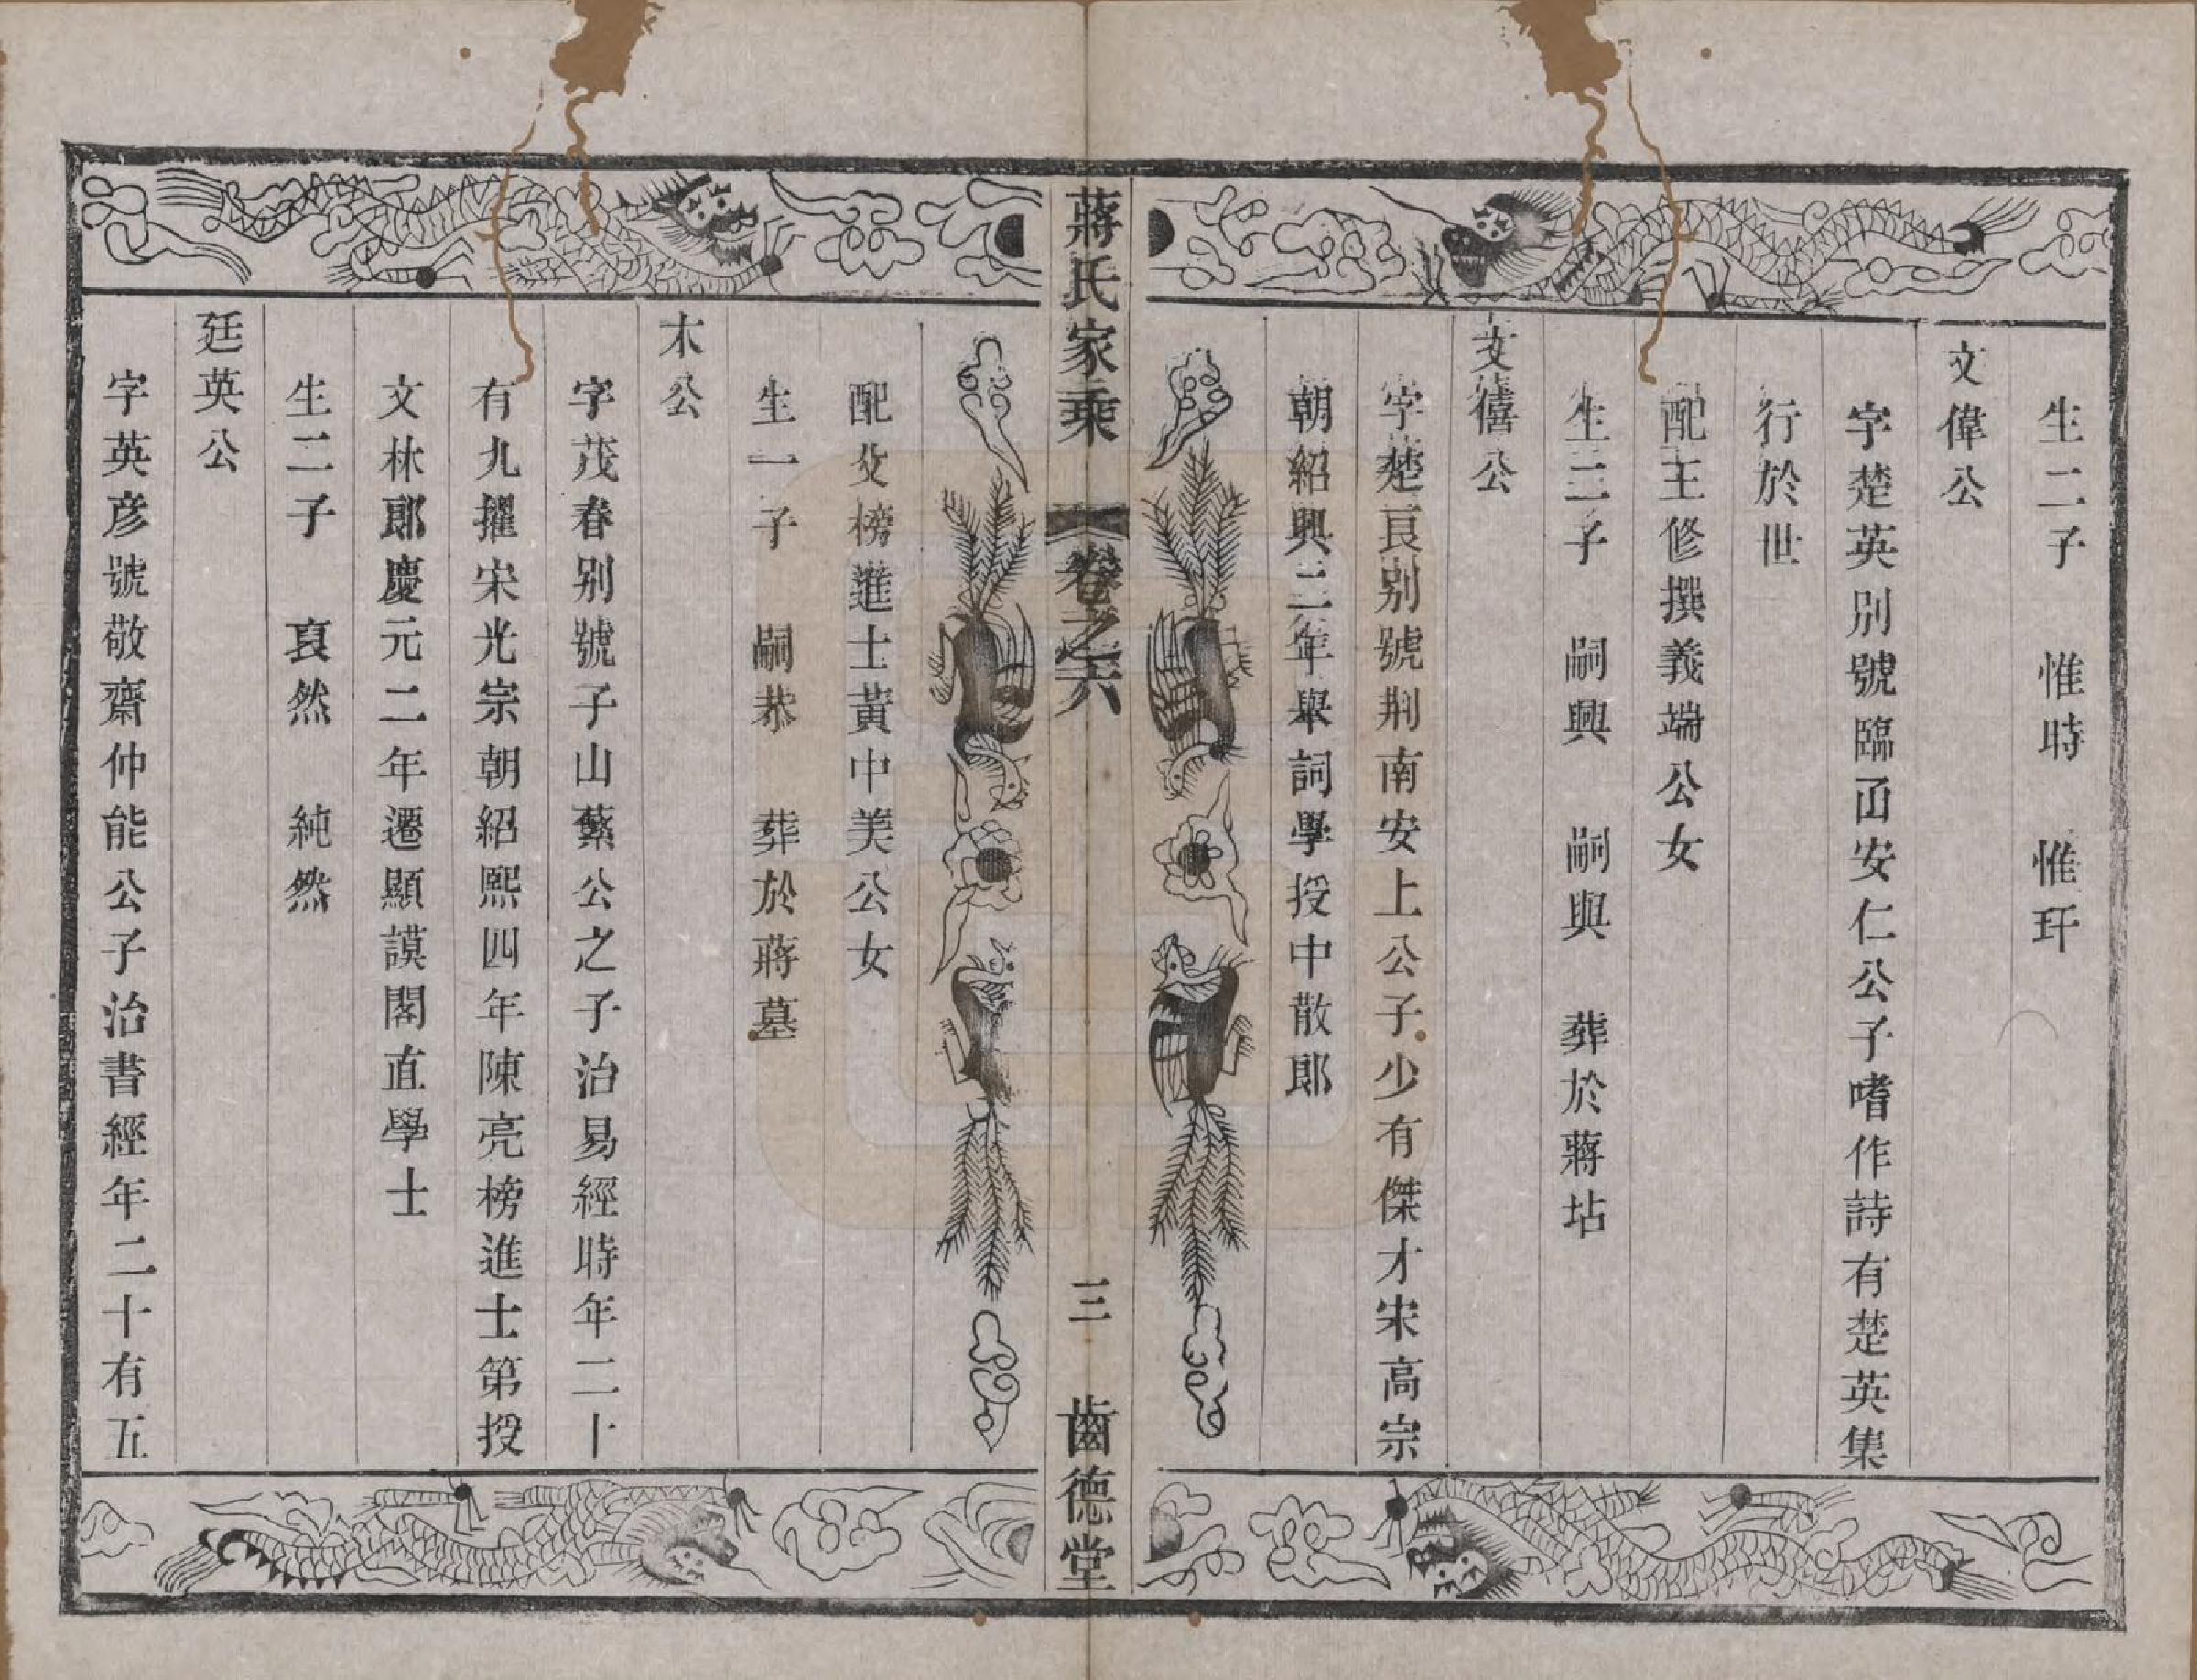 生二子　惟時　惟玕
文偉公
字楚英別號臨函安仁公子嗜作詩有楚英集
行於世
配王修撰義端公女
生二子　嗣興　嗣與　葬於蔣坫
文僖公
字楚良别號荆南安上公子少有傑才宋高宗
朝紹興二年舉詞學授中散郎
蔣氏家乘　卷之六　三　齒德堂
配文榜進士黃中美公女
生一子　嗣恭　葬於蔣墓
木公
字茂春别號子山蘩公之子治易經時年二十
有九擢宋光宗朝紹熙四年陳亮榜進士第授
文林郎慶元二年遷顯謨閣直學士
生二子　㐮然　純然
廷英公
字英彦號敬齋仲能公子治書經年二十有五